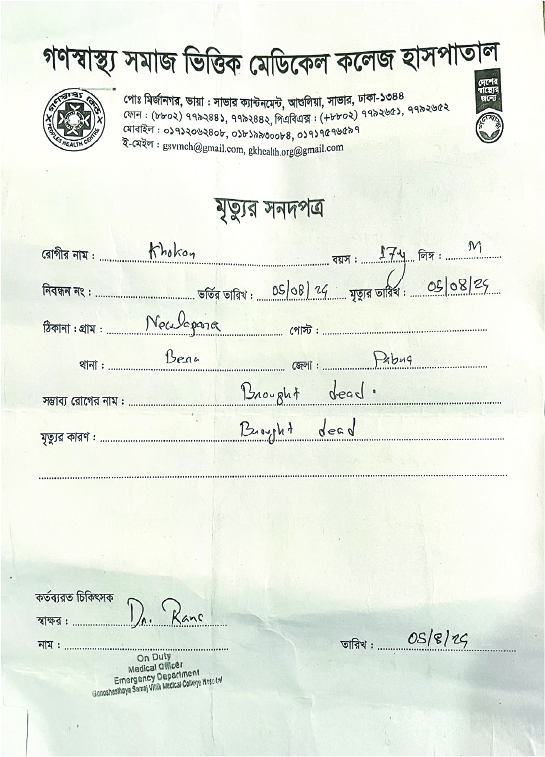 গণস্বাস্থ্য সমাজ ভিত্তিক মেডিকেল কলেজ হাসপাতাল
গণস্বাস্থ্য কেন্দ্র
PEOPLES HEALTH CENTRE
দেশের স্বাস্থ্যের জন্যে
পোঃ মির্জানগর, ভায়া : সাভার ক্যান্টনমেন্ট, আশুলিয়া, সাভার, ঢাকা-১৩৪৪
ফোন : (৮৮০২) ৭৭৯২৪৪১, ৭৭৯২৪৪২, পিএবিএক্স : (+৮৮০২) ৭৭৯২৬৫১, ৭৭৯২৬৫২
মোবাইল : ০১৭১২০৬২৪০৮, ০১৮১৯৯৩০০৮৪, ০১৭১৭৫৭৬৫৯৭
ই-মেইল : gsvmch@gmail.com, gkhealth.org@gmail.com
মৃত্যুর সনদপত্র
রোগীর নাম : Khokon বয়স : 17y লিঙ্গ : M
নিবন্ধন নং : ভর্তির তারিখ : 05/08/24 মৃত্যুর তারিখ : 05/08/24
ঠিকানা : গ্রাম : পোস্ট :
থানা : Bera জেলা : Pabna
সম্ভাব্য রোগের নাম : Brought dead.
মৃত্যুর কারণ : Brought dead
কর্তব্যরত চিকিৎসক
স্বাক্ষর : Dr.
নাম : তারিখ : 05/8/24
On Duty
Medical Officer
Emergency Department
Gonoshasthaya Samaj Vittik Medical College Hospital